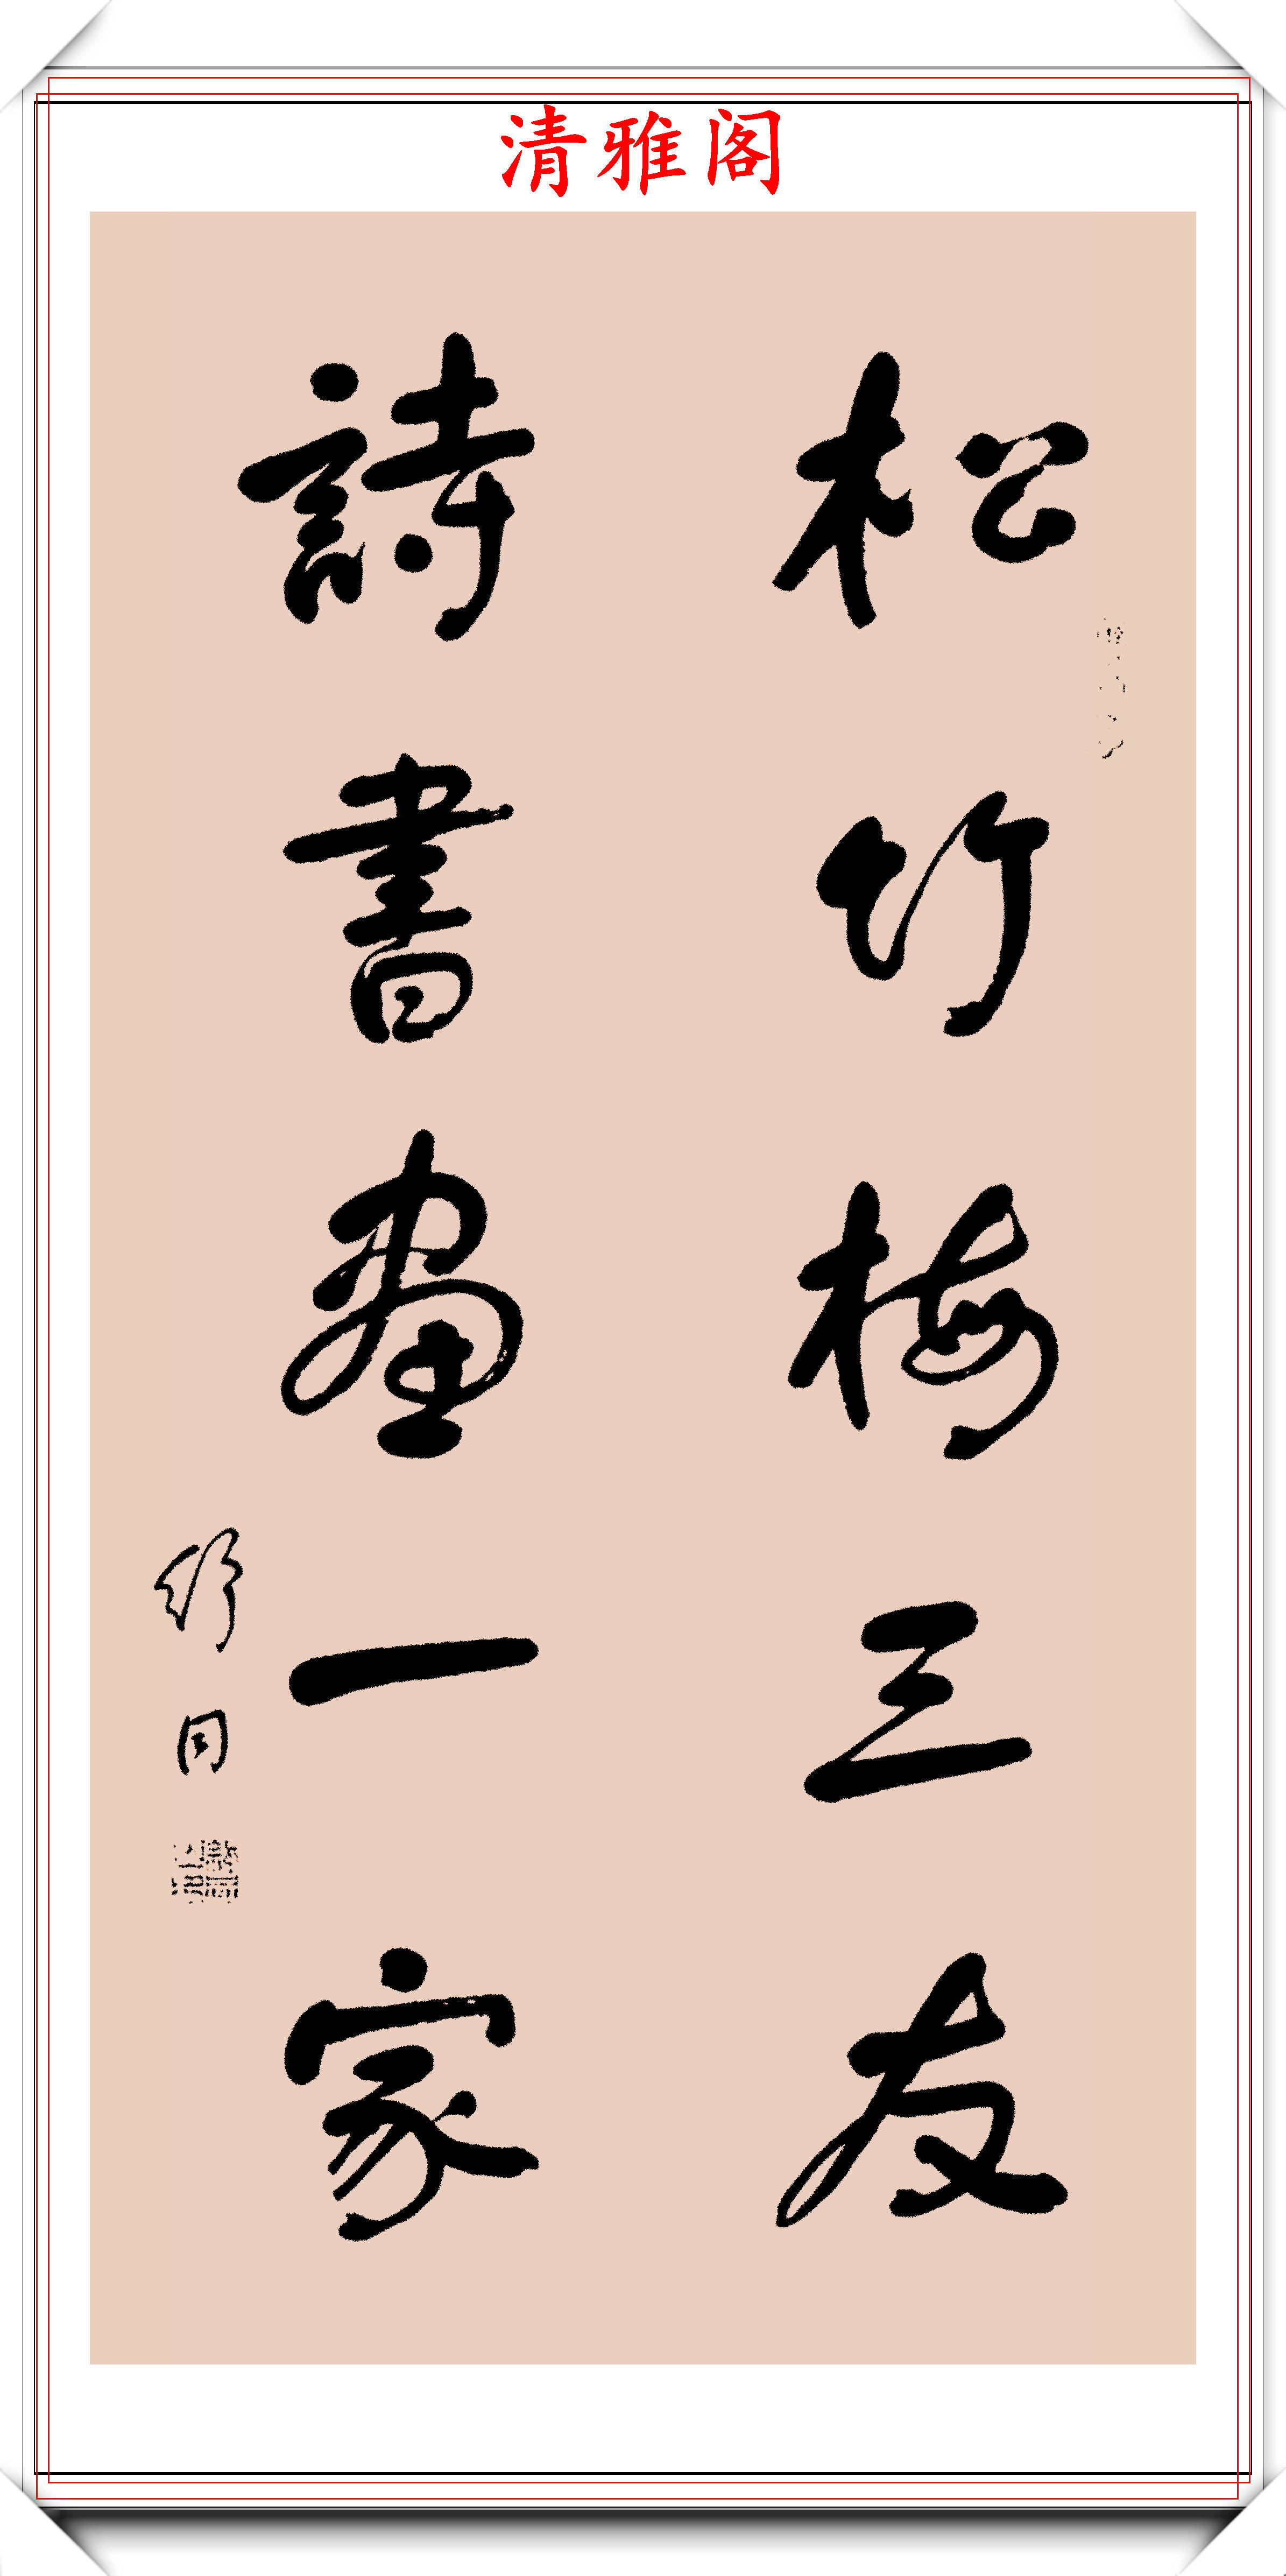 清雅阁
松竹梅三友
詩書畫一家
舒同